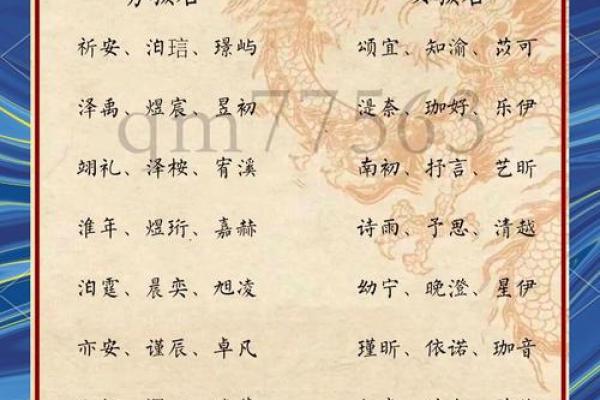 祈安、泊琂、璟屿
颂宜、知渝、苡可
泽禹、煜宸、昱初
湜奈、珈好、乐伊
qm77563
翊礼、泽桉、宥溪
南初、抒言、艺昕
淮年、煜珩、嘉赫
诗雨、予思、清越
泊霆、晨奕、旭凌
幼宁、晚澄、星伊
亦安、谨辰、卓凡
瑾昕、依诺、珈音